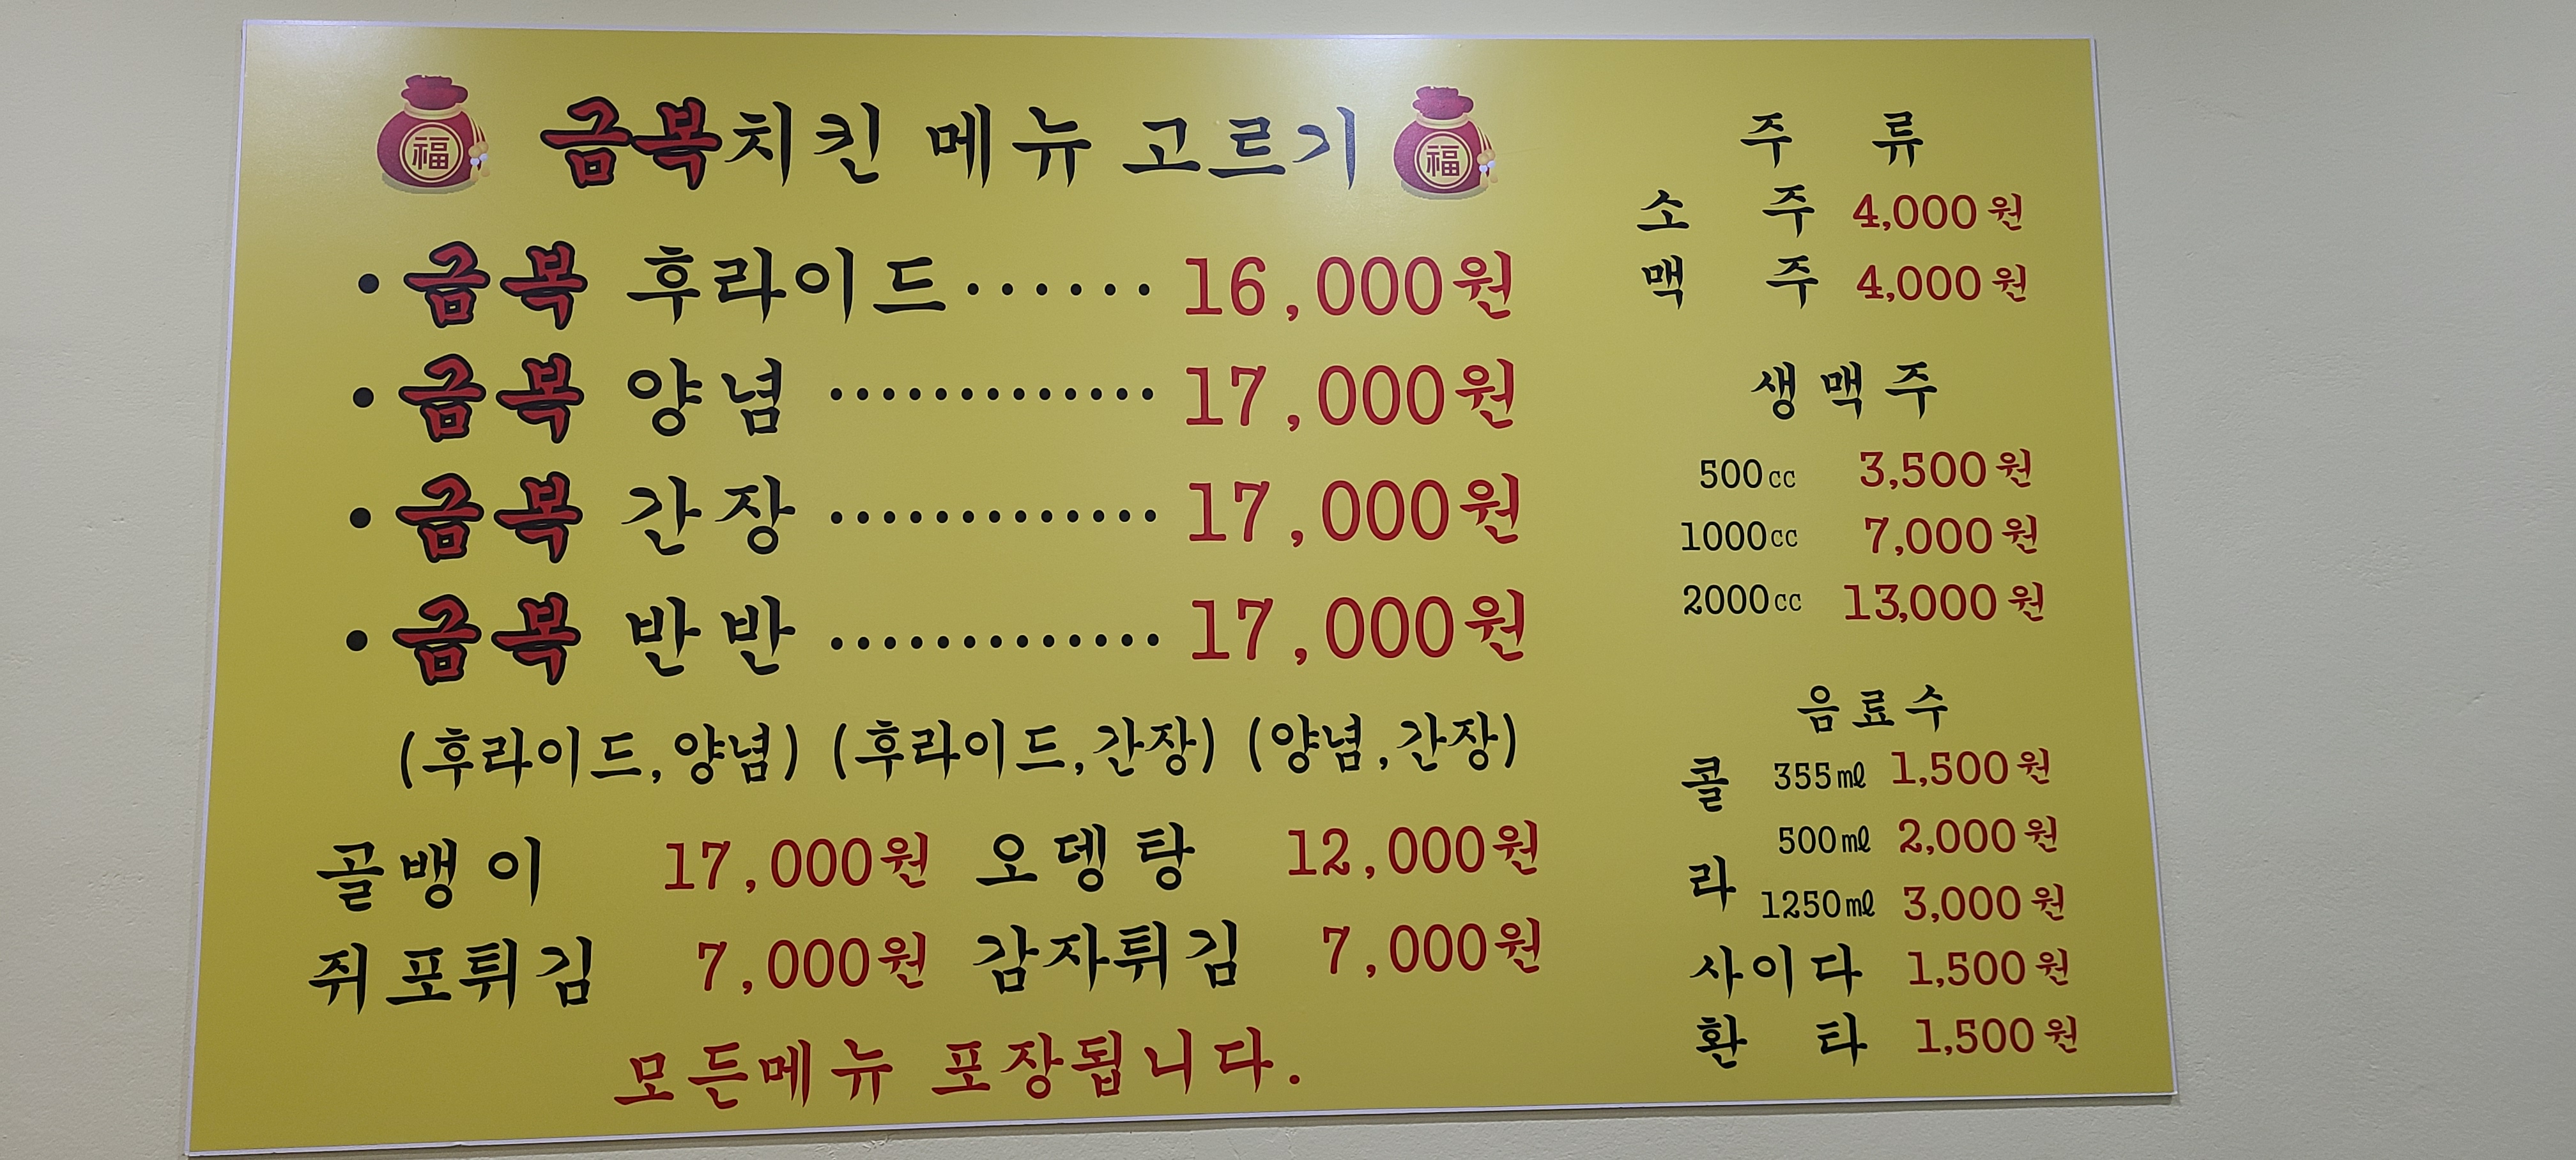 福 금복치킨 메뉴 고르기 福
• 금복 후라이드 ...... 16,000원
• 금복 양념 ............. 17,000원
• 금복 간장 ............. 17,000원
• 금복 반반 ............. 17,000원
(후라이드,양념) (후라이드,간장) (양념,간장)
골뱅이 17,000원 오뎅탕 12,000원
쥐포튀김 7,000원 감자튀김 7,000원
모든메뉴 포장됩니다.
주 류
소 주 4,000원
맥 주 4,000원
생맥주
500cc 3,500원
1000cc 7,000원
2000cc 13,000원
음료수
콜라 355㎖ 1,500원
500㎖ 2,000원
1250㎖ 3,000원
사이다 1,500원
환 타 1,500원